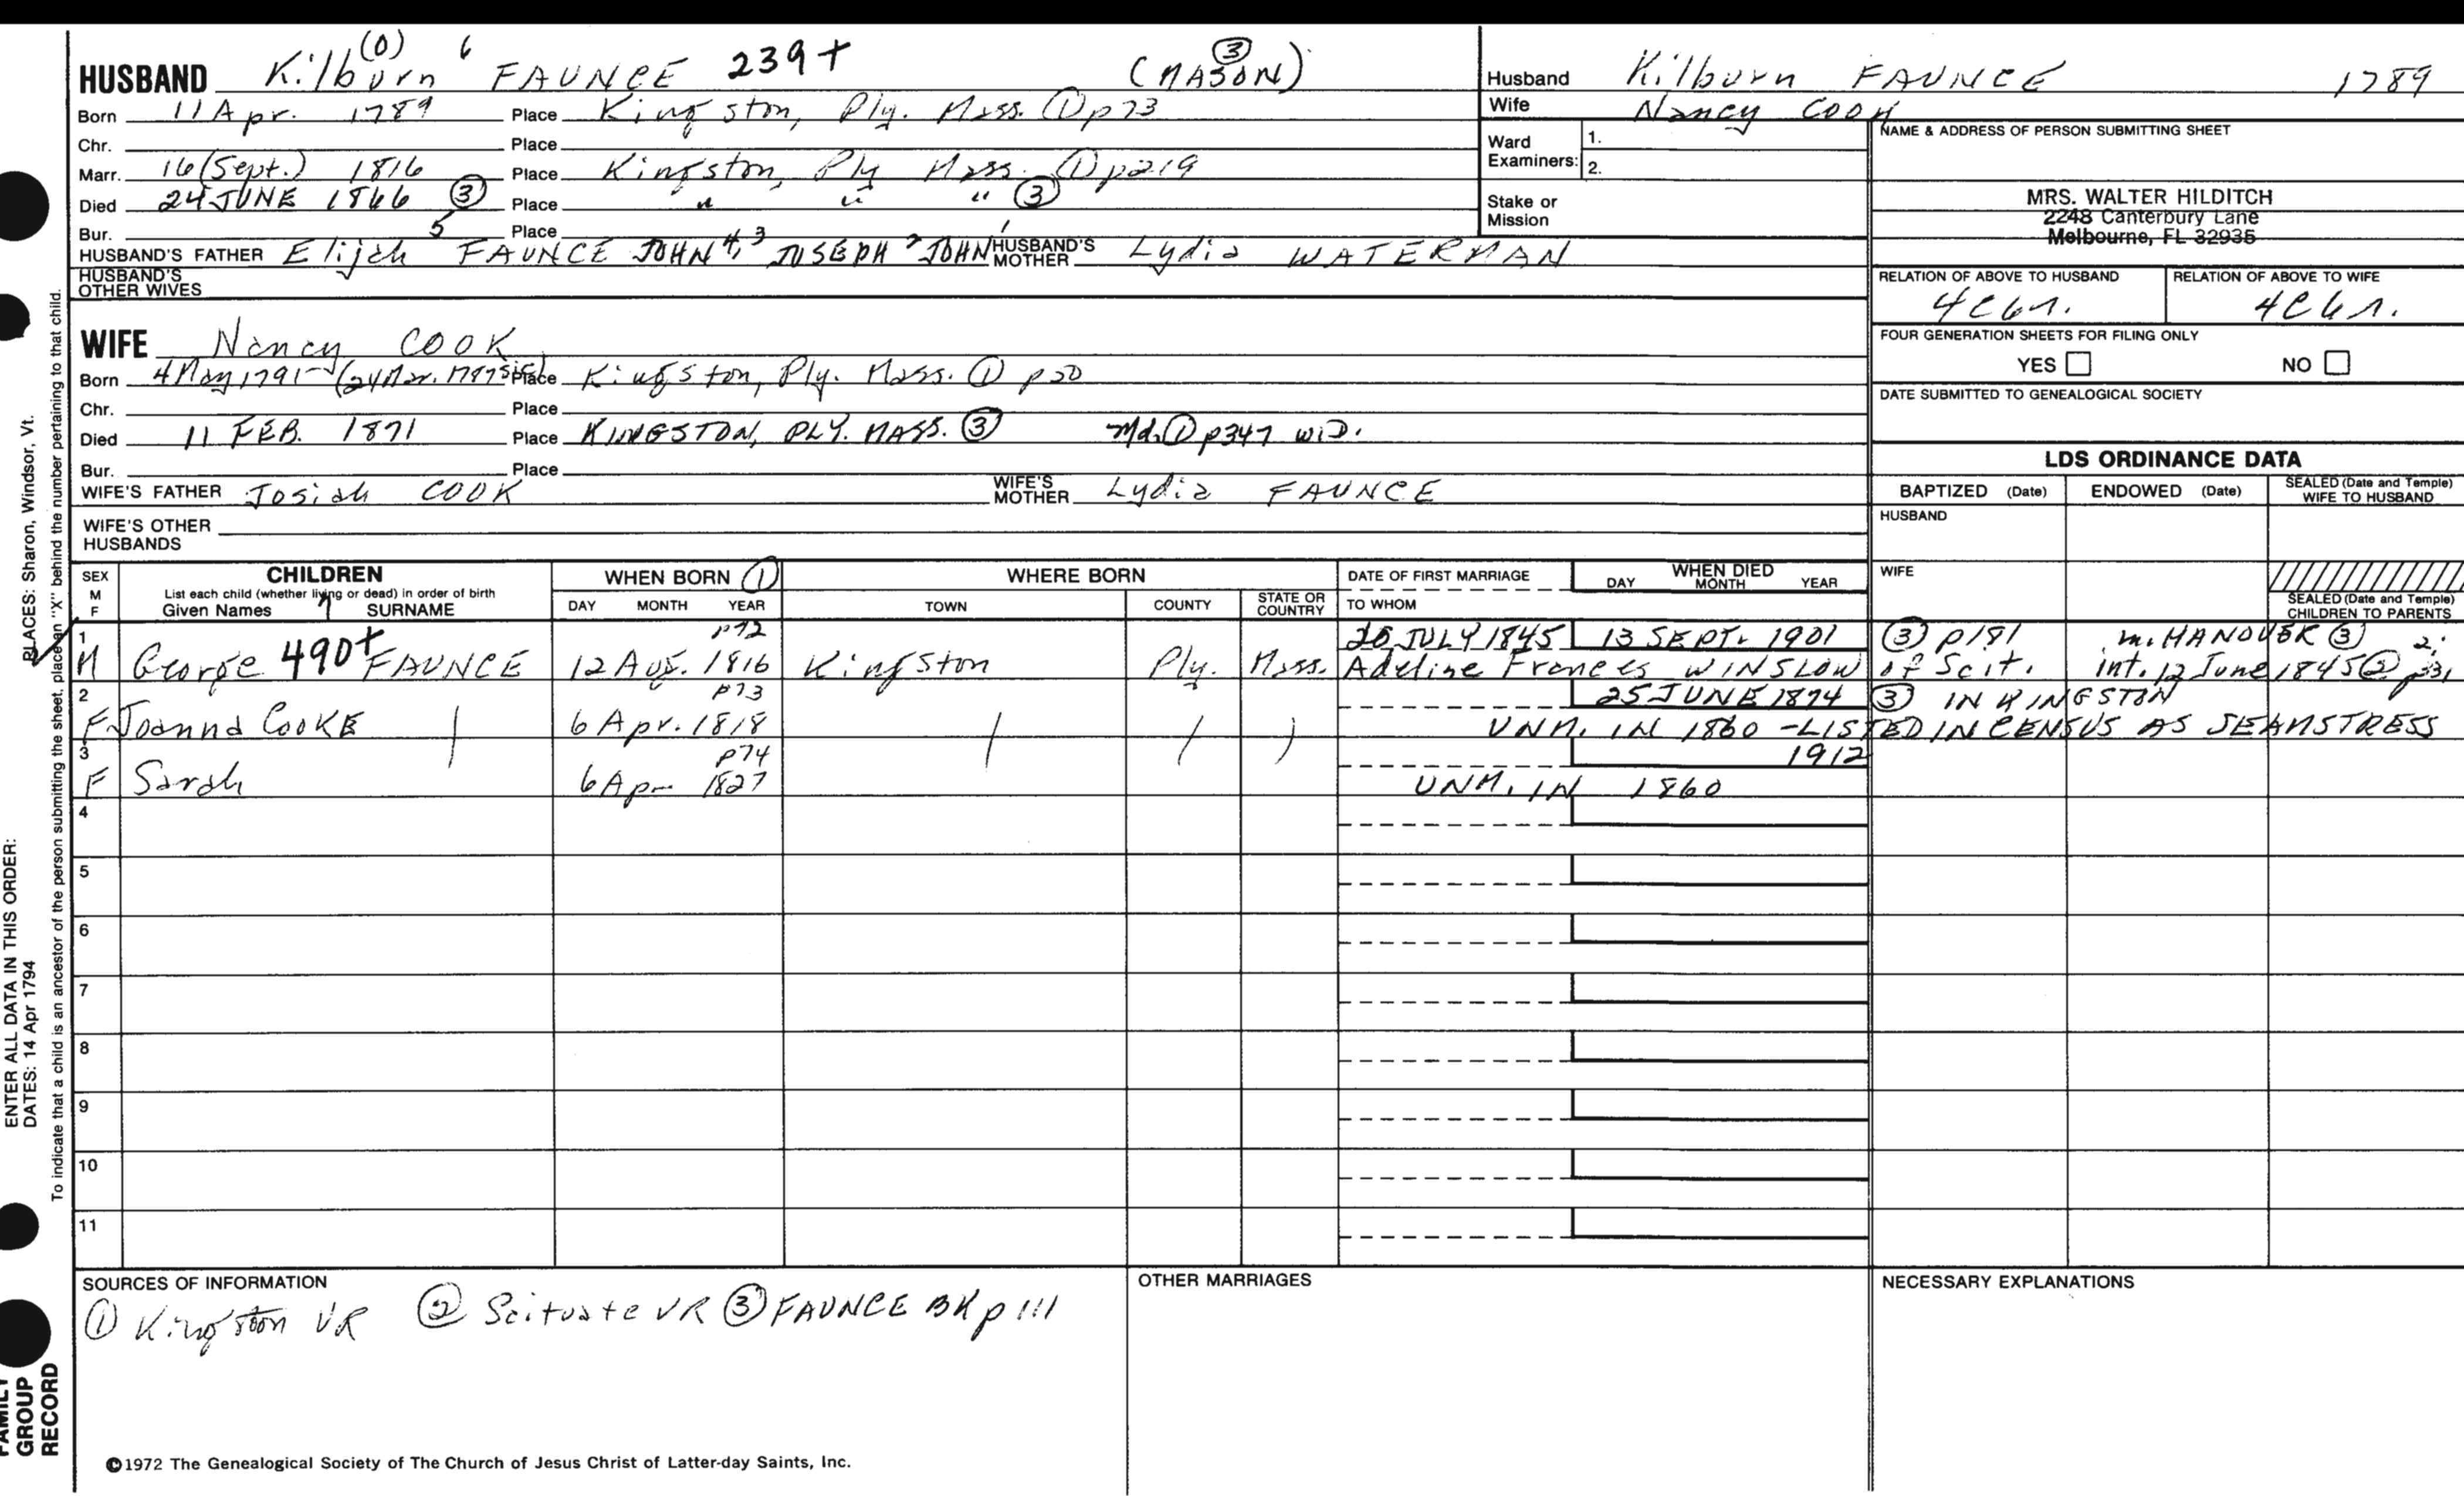 HUSBAND Kilburn (0) 6 FAUNCE 239+ (MASON) ③
Born 11 Apr. 1789 Place Kingston, Ply. Mass. ① p73
Chr. Place
Marr. 16 (Sept.) 1816 Place Kingston, Ply Mass. ① p219
Died 24 JUNE 1866 ③ Place " " " ③
Bur. Place
HUSBAND'S FATHER Elijah 5 FAUNCE JOHN 4, 3 JOSEPH 2 JOHN 1 HUSBAND'S MOTHER Lydia WATERMAN
HUSBAND'S OTHER WIVES
WIFE Nancy COOK
Born 4 May 1791 (24 Mar. 1787 sic) Place Kingston, Ply. Mass. ① p50
Chr. Place
Died 11 FEB. 1871 Place KINGSTON, PLY. MASS. ③ Md. ① p347 WID.
Bur. Place
WIFE'S FATHER Josiah COOK WIFE'S MOTHER Lydia FAUNCE
WIFE'S OTHER HUSBANDS
Husband Kilburn FAUNCE 1789
Wife Nancy COOK
Ward Examiners: 1.
2.
Stake or Mission
NAME & ADDRESS OF PERSON SUBMITTING SHEET
MRS. WALTER HILDITCH
2248 Canterbury Lane
Melbourne, FL 32935
RELATION OF ABOVE TO HUSBAND RELATION OF ABOVE TO WIFE
4C6r. 4C6r.
FOUR GENERATION SHEETS FOR FILING ONLY
YES NO
DATE SUBMITTED TO GENEALOGICAL SOCIETY
LDS ORDINANCE DATA
BAPTIZED (Date) ENDOWED (Date) SEALED (Date and Temple) WIFE TO HUSBAND
HUSBAND
WIFE
SEALED (Date and Temple) CHILDREN TO PARENTS
SEX M F CHILDREN WHEN BORN ① WHERE BORN DATE OF FIRST MARRIAGE WHEN DIED
List each child (whether living or dead) in order of birth
Given Names SURNAME DAY MONTH YEAR TOWN COUNTY STATE OR COUNTRY TO WHOM DAY MONTH YEAR
1 p72 20 JULY 1845 13 SEPT. 1901 ③ p181 m. HANOVER ③
M George 490+ FAUNCE 12 Aug. 1816 Kingston Ply. Mass. Adeline Frances WINSLOW of Scit. int. 12 June 1845 ②
2 p73 25 JUNE 1874 ③ IN KINGSTON
F Joanna COOKE 6 Apr. 1818 UNM. IN 1860 - LISTED IN CENSUS AS SEAMSTRESS
3 p74 1912
F Sarah 6 Apr 1827 UNM. IN 1860
4
5
6
7
8
9
10
11
SOURCES OF INFORMATION
① Kingston VR ② Scituate VR ③ FAUNCE BK p 111
OTHER MARRIAGES
NECESSARY EXPLANATIONS
©1972 The Genealogical Society of The Church of Jesus Christ of Latter-day Saints, Inc.
FAMILY GROUP RECORD
ENTER ALL DATA IN THIS ORDER:
DATES: 14 Apr 1794
PLACES: Sharon, Windsor, Vt.
To indicate that a child is an ancestor of the person submitting the sheet, place an "X" behind the number pertaining to that child.